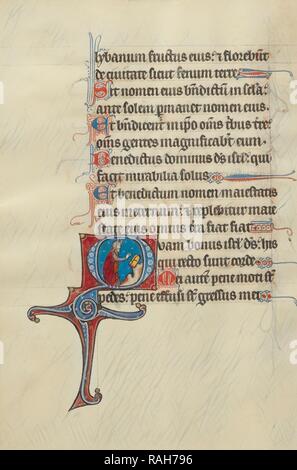 lybanum fructus eius: et florebunt
de ciuitate sicut fenum terre.
Sit nomen eius bndictum in scla:
ante solem permanet nomen eius.
Et bndicent in ipo oms tbus tre:
oms gentes magnificabunt eum.
Benedictus dominus ds isrl: qui
facit mirabilia solus.
Et benedictum nomen maiestatis
eius in eternum: et replebitur maie
state eius omnis tra fiat fiat.
Quam bonus isrl ds: hiis
qui recto sunt corde.
Mei autem pene moti st
pedes: pene effusi st gressus mei.
alamy
RAH796
www.alamy.com